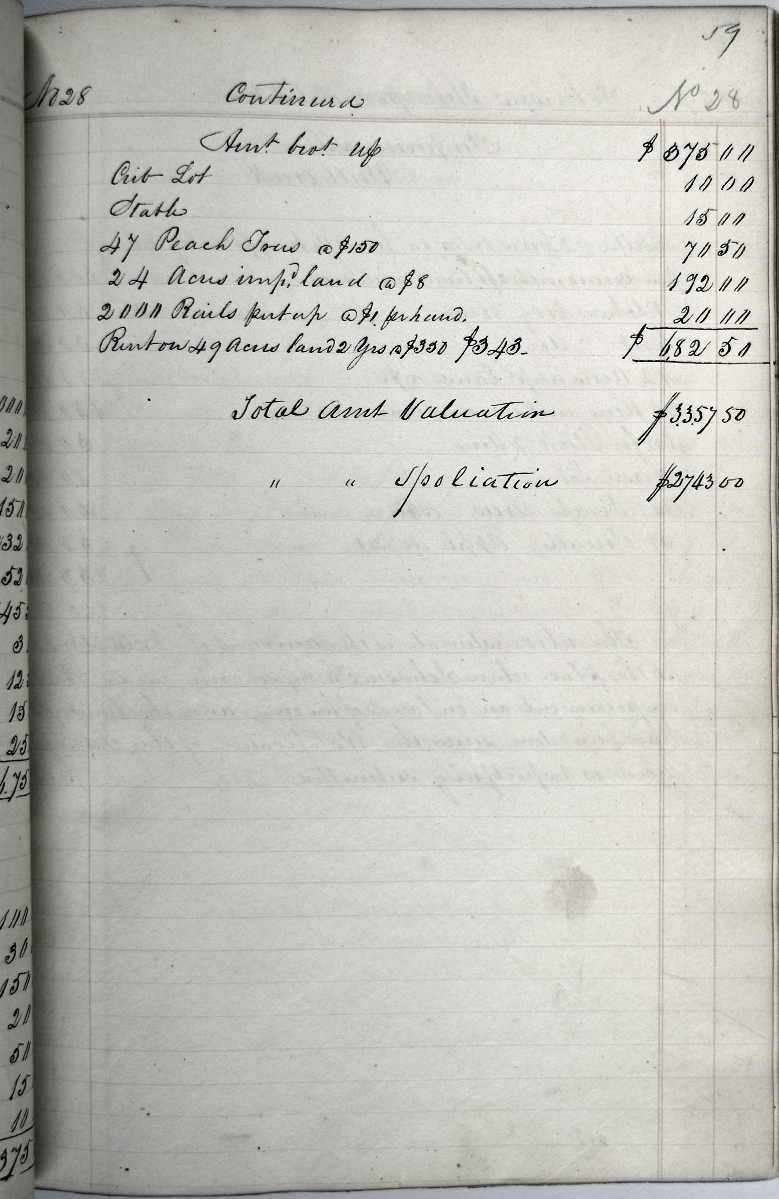 59
No 28 Continued No 28
Amt. brot. up $ 375 00
Crib Lot 10 00
Stable 15 00
47 Peach Trees @ $1 50 70 50
24 Acres imp.d land @ $8 192 00
2000 Rails put up @ $1. per hund. 20 00
Rent on 49 Acres land 2 Yrs @ $3 50 $343- $ 682 50
Total Amt Valuation $3357 50
" " Spoliation $2743 00
000
20
20
150
32
52
45
3
12
15
25
.75
100
30
150
20
50
15
10
375